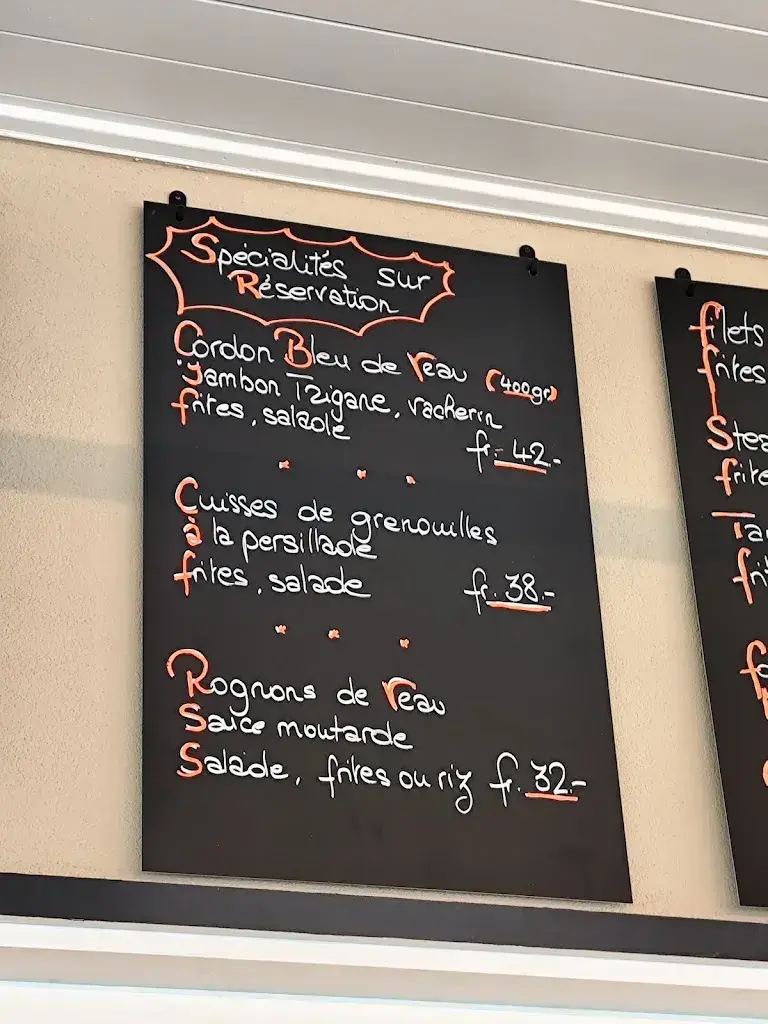 Spécialités sur
Réservation
Cordon Bleu de Veau (400gr)
Jambon Tzigane, vacherin
frites, salade
fr. 42.-
* * *
Cuisses de grenouilles
à la persillade
frites, salade fr. 38.-
* * *
Rognons de Veau
Sauce moutarde
Salade, frites ou riz fr. 32.-
filets
frites